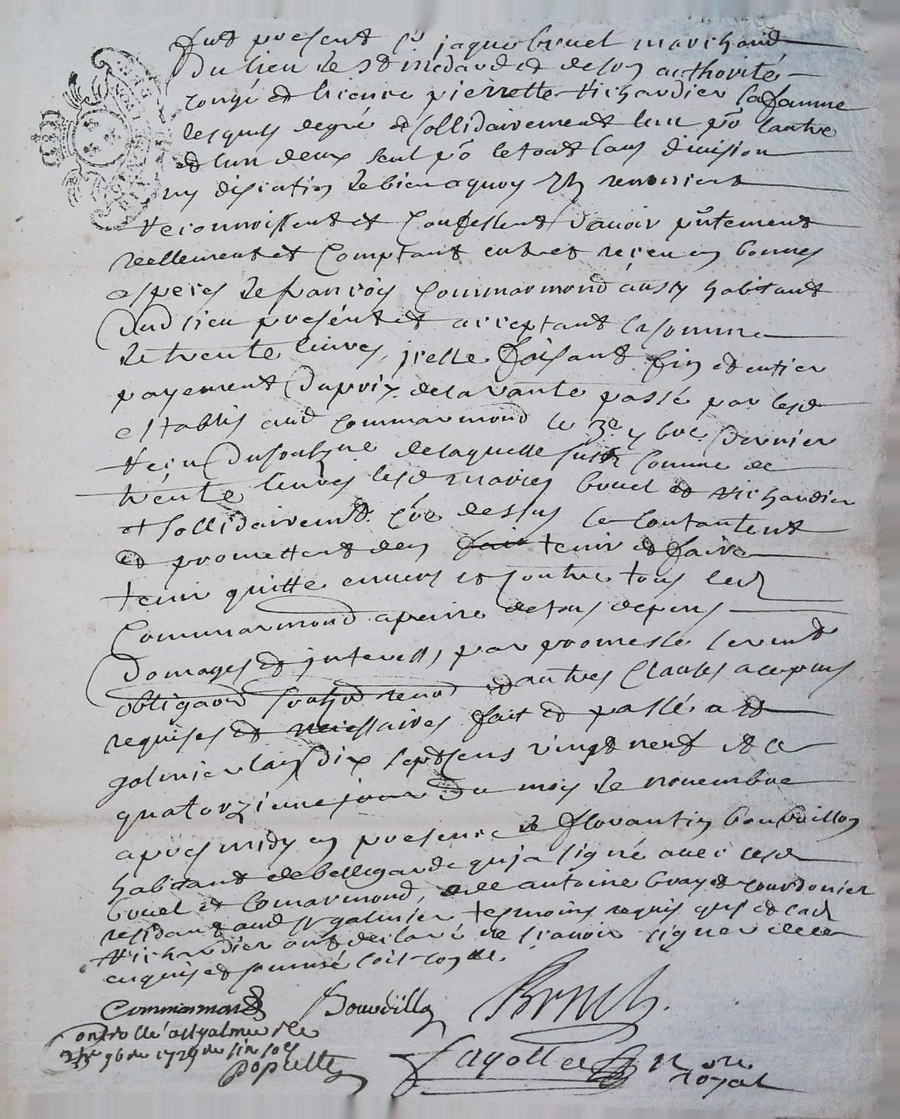 fut present sr jaque bruel marchand
du lieu de St medard et de son authorité
congé et licence pierrette Richardier sa famme
lesquels de gré et sollidairement l'un pr l'autre
et l'un deux seul pr le tout sans division
ny discution de bien a quoy ils renoncent
Reconnoissent et confessent d'avoir pntement
reellement et comptant eu et receu en bonnes
especes de françois Commarmond aussy habitant
dud lieu present et acceptant la somme
de trente livres, icelle faisant fin et entier
payement du prix de la vante passé par lesd
establis aud Commarmond le 3e 
Reçu de laquelle susd somme de
trente livres lesd mariés bruel et Richardier
et sollidairemt cõe dessus se contantent
et promettent den tenir et faire
tenir quitte envers et contre tous led
Commarmond a peine de tous depens
Domages et interests, par promesse serment
obligaõn et autres clauses a ce plus
requises et necessaires fait et passé a St
galmier lan dix sept cens vingt neuf et le
quatorzieme jour du moys de novembre
apres midy en presence de florantin bourdillon
habitant de bellegarde qui a signé avec lesd
bruel et Comarmond, et de antoine courdonier
residant aud St galmier tesmoins requis qui et lad
Richardier ont declaré ne sçavoir signer de ce
enquis et sommé
Commarmond Bourdillon Bruel
Controllé a St galmier le
9b 1729 six sols